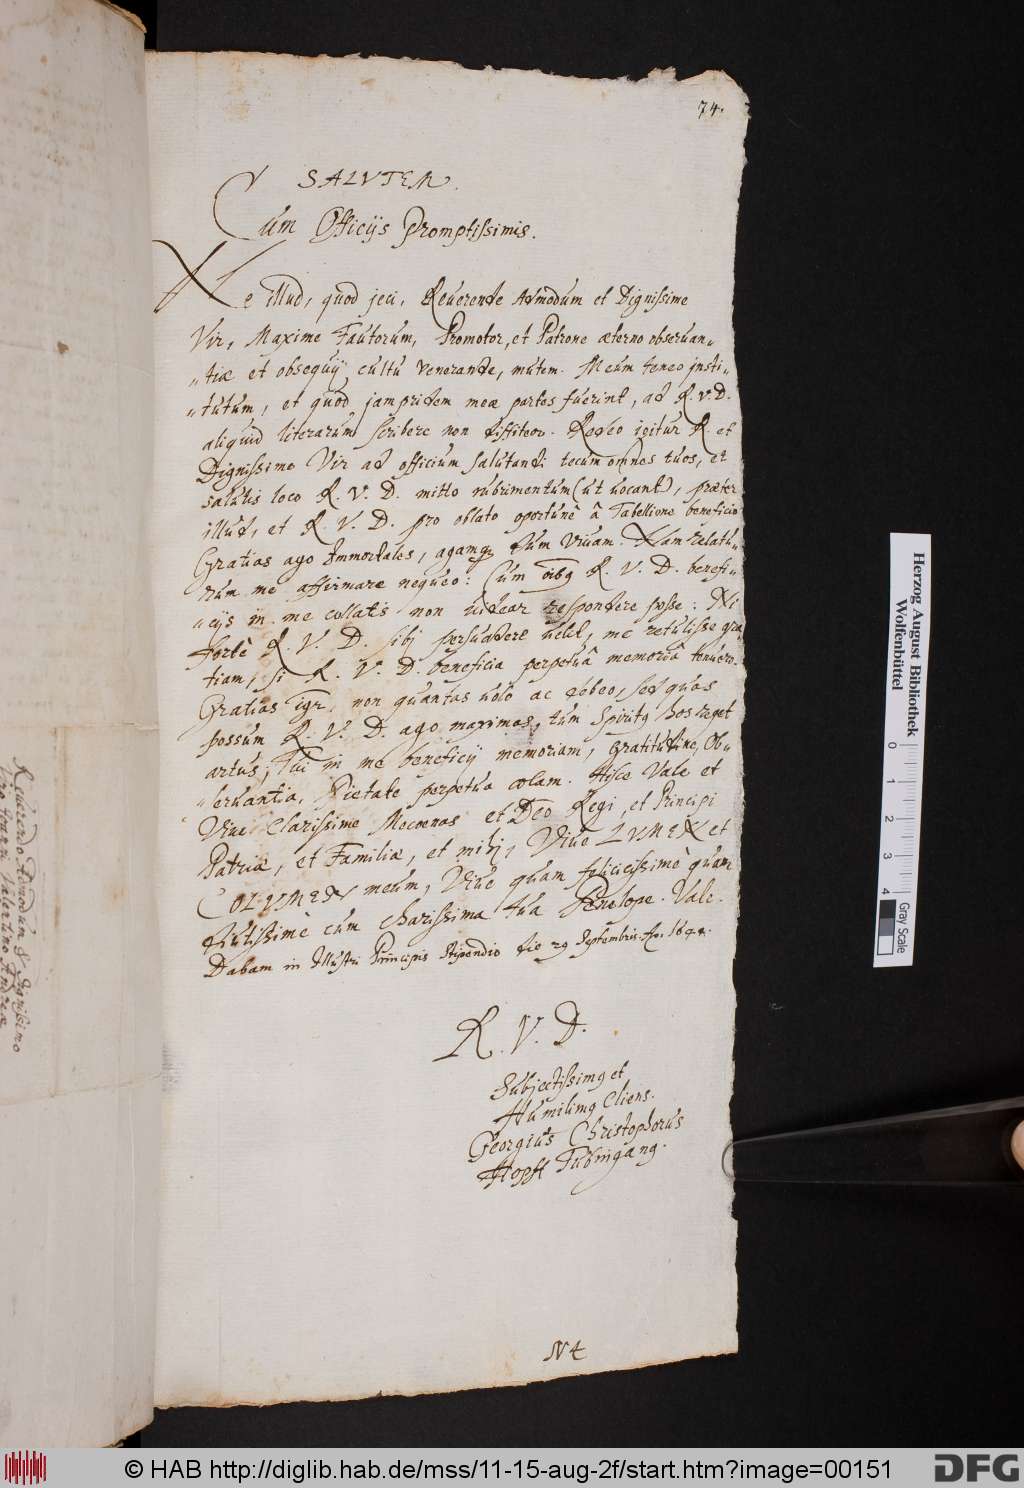 74.
SALVTEM.
Cum Officijs Promptissimis.
Ne illud, quod jeci, Reverende Admodum et Dignissime
Vir, Maxime Fautorum, Promotor, et Patrone æterno observan„
„tiæ et obsequij cultu Venerande, mutem. Meum teneo insti„
„tutum, et quod jampridem meæ partes fuerint, ad R.V.D.
aliquid literarum scribere non diffiteor. Redeo igitur R. et
Dignissime Vir ad officium salutandi tecum omnes tuos, et
salutis loco R. V. D. mitto nubrimentum (ut vocant), præter
illud, et R. V. D. pro oblato oportunè â Tabellione beneficio
Gratias ago Immortales, agamq dum Vivam. Nam relatu„
rum me affirmare nequeo: Cum oibq R. V. D. benefi„
„cijs in me collatis non videar respondere posse: Ni
fortè R. V. D. sibj persuadere velit, me retulisse gra
tiam, si R. V. D. beneficia perpetuâ memoriâ tenuero.
Gratias igr. non quantas volo ac debeo, sed quas
possum R. V. D. ago maximas, dum Spiritq hos reget
artus, Tui in me beneficij memoriam, Gratitudine, Ob„
„servantia, Pietate perpetua colam. Hisce Vale et
Vive Clarissime Mecoenas et DEO Regi, et Principi
Patriæ, et Familiæ, et mihj, Vive LVMEN et
COLVMEN meum, Vive quam felicissimè quam
diutissimè cum charissima tua Penelope. Vale.
Dabam in Illustri Principis Stipendio die 29 Septembris
R. V. D.
Subjectissimq et
Humilimq Cliens.
Georgius Christophorus
Hopff Tubingang.
N4
Reverendo Admodum & Dignissimo
Herzog August Bibliothek
Wolfenbüttel
0 1 2 3 4
Gray Scale
© HAB http://diglib.hab.de/mss/11-15-aug-2f/start.htm?image=00151
DFG